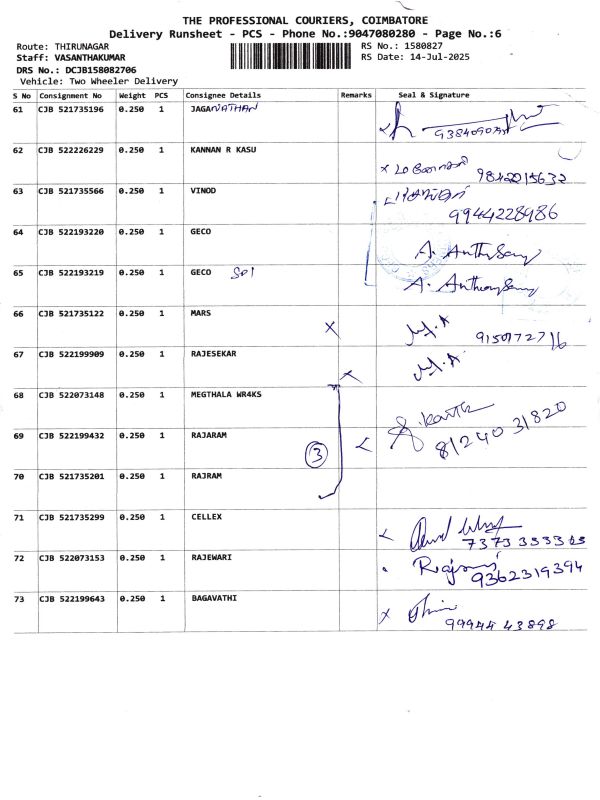 THE PROFESSIONAL COURIERS, COIMBATORE
Delivery Runsheet - PCS - Phone No.:9047080280 - Page No.:6
Route: THIRUNAGAR RS No.: 1580827
Staff: VASANTHAKUMAR RS Date: 14-Jul-2025
DRS No.: DCJB158082706
Vehicle: Two Wheeler Delivery
S No Consignment No Weight PCS Consignee Details Remarks Seal & Signature
61 CJB 521735196 0.250 1 JAGANATHAN
62 CJB 522226229 0.250 1 KANNAN R KASU 9842215632
63 CJB 521735566 0.250 1 VINOD
9944228986
64 CJB 522193220 0.250 1 GECO A. Anthonysamy
65 CJB 522193219 0.250 1 GECO A. Anthonysamy
66 CJB 521735122 0.250 1 MARS X M.A
67 CJB 522199909 0.250 1 RAJESEKAR X M.A
68 CJB 522073148 0.250 1 MEGTHALA WR4KS
69 CJB 522199432 0.250 1 RAJARAM 3 8124031820
70 CJB 521735201 0.250 1 RAJRAM
71 CJB 521735299 0.250 1 CELLEX
72 CJB 522073153 0.250 1 RAJEWARI 9362319394
73 CJB 522199643 0.250 1 BAGAVATHI X
99944 43898